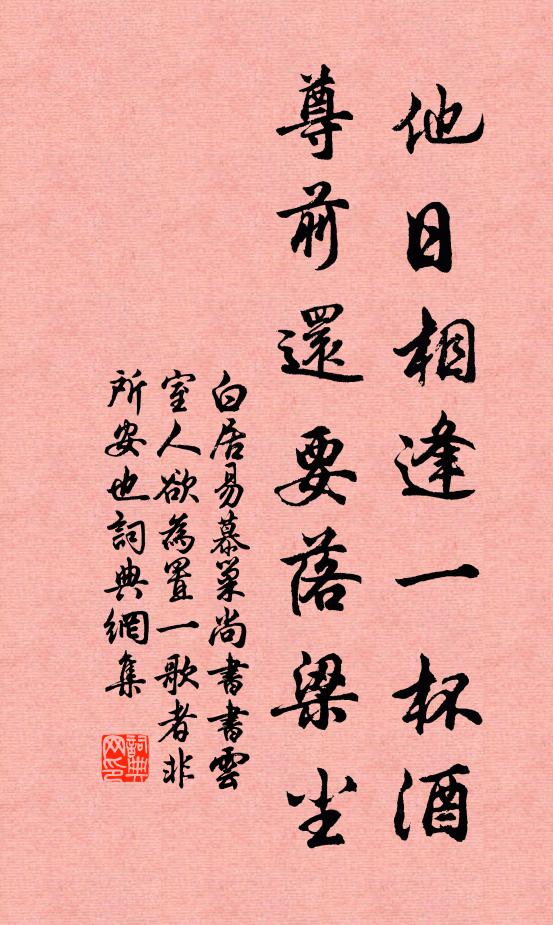 他日相逢一杯酒
尊前還要落梁尘
白居易慕巢尚書書雲
室人欲為置一歌者非
所安也詞典網集
詞典
网印